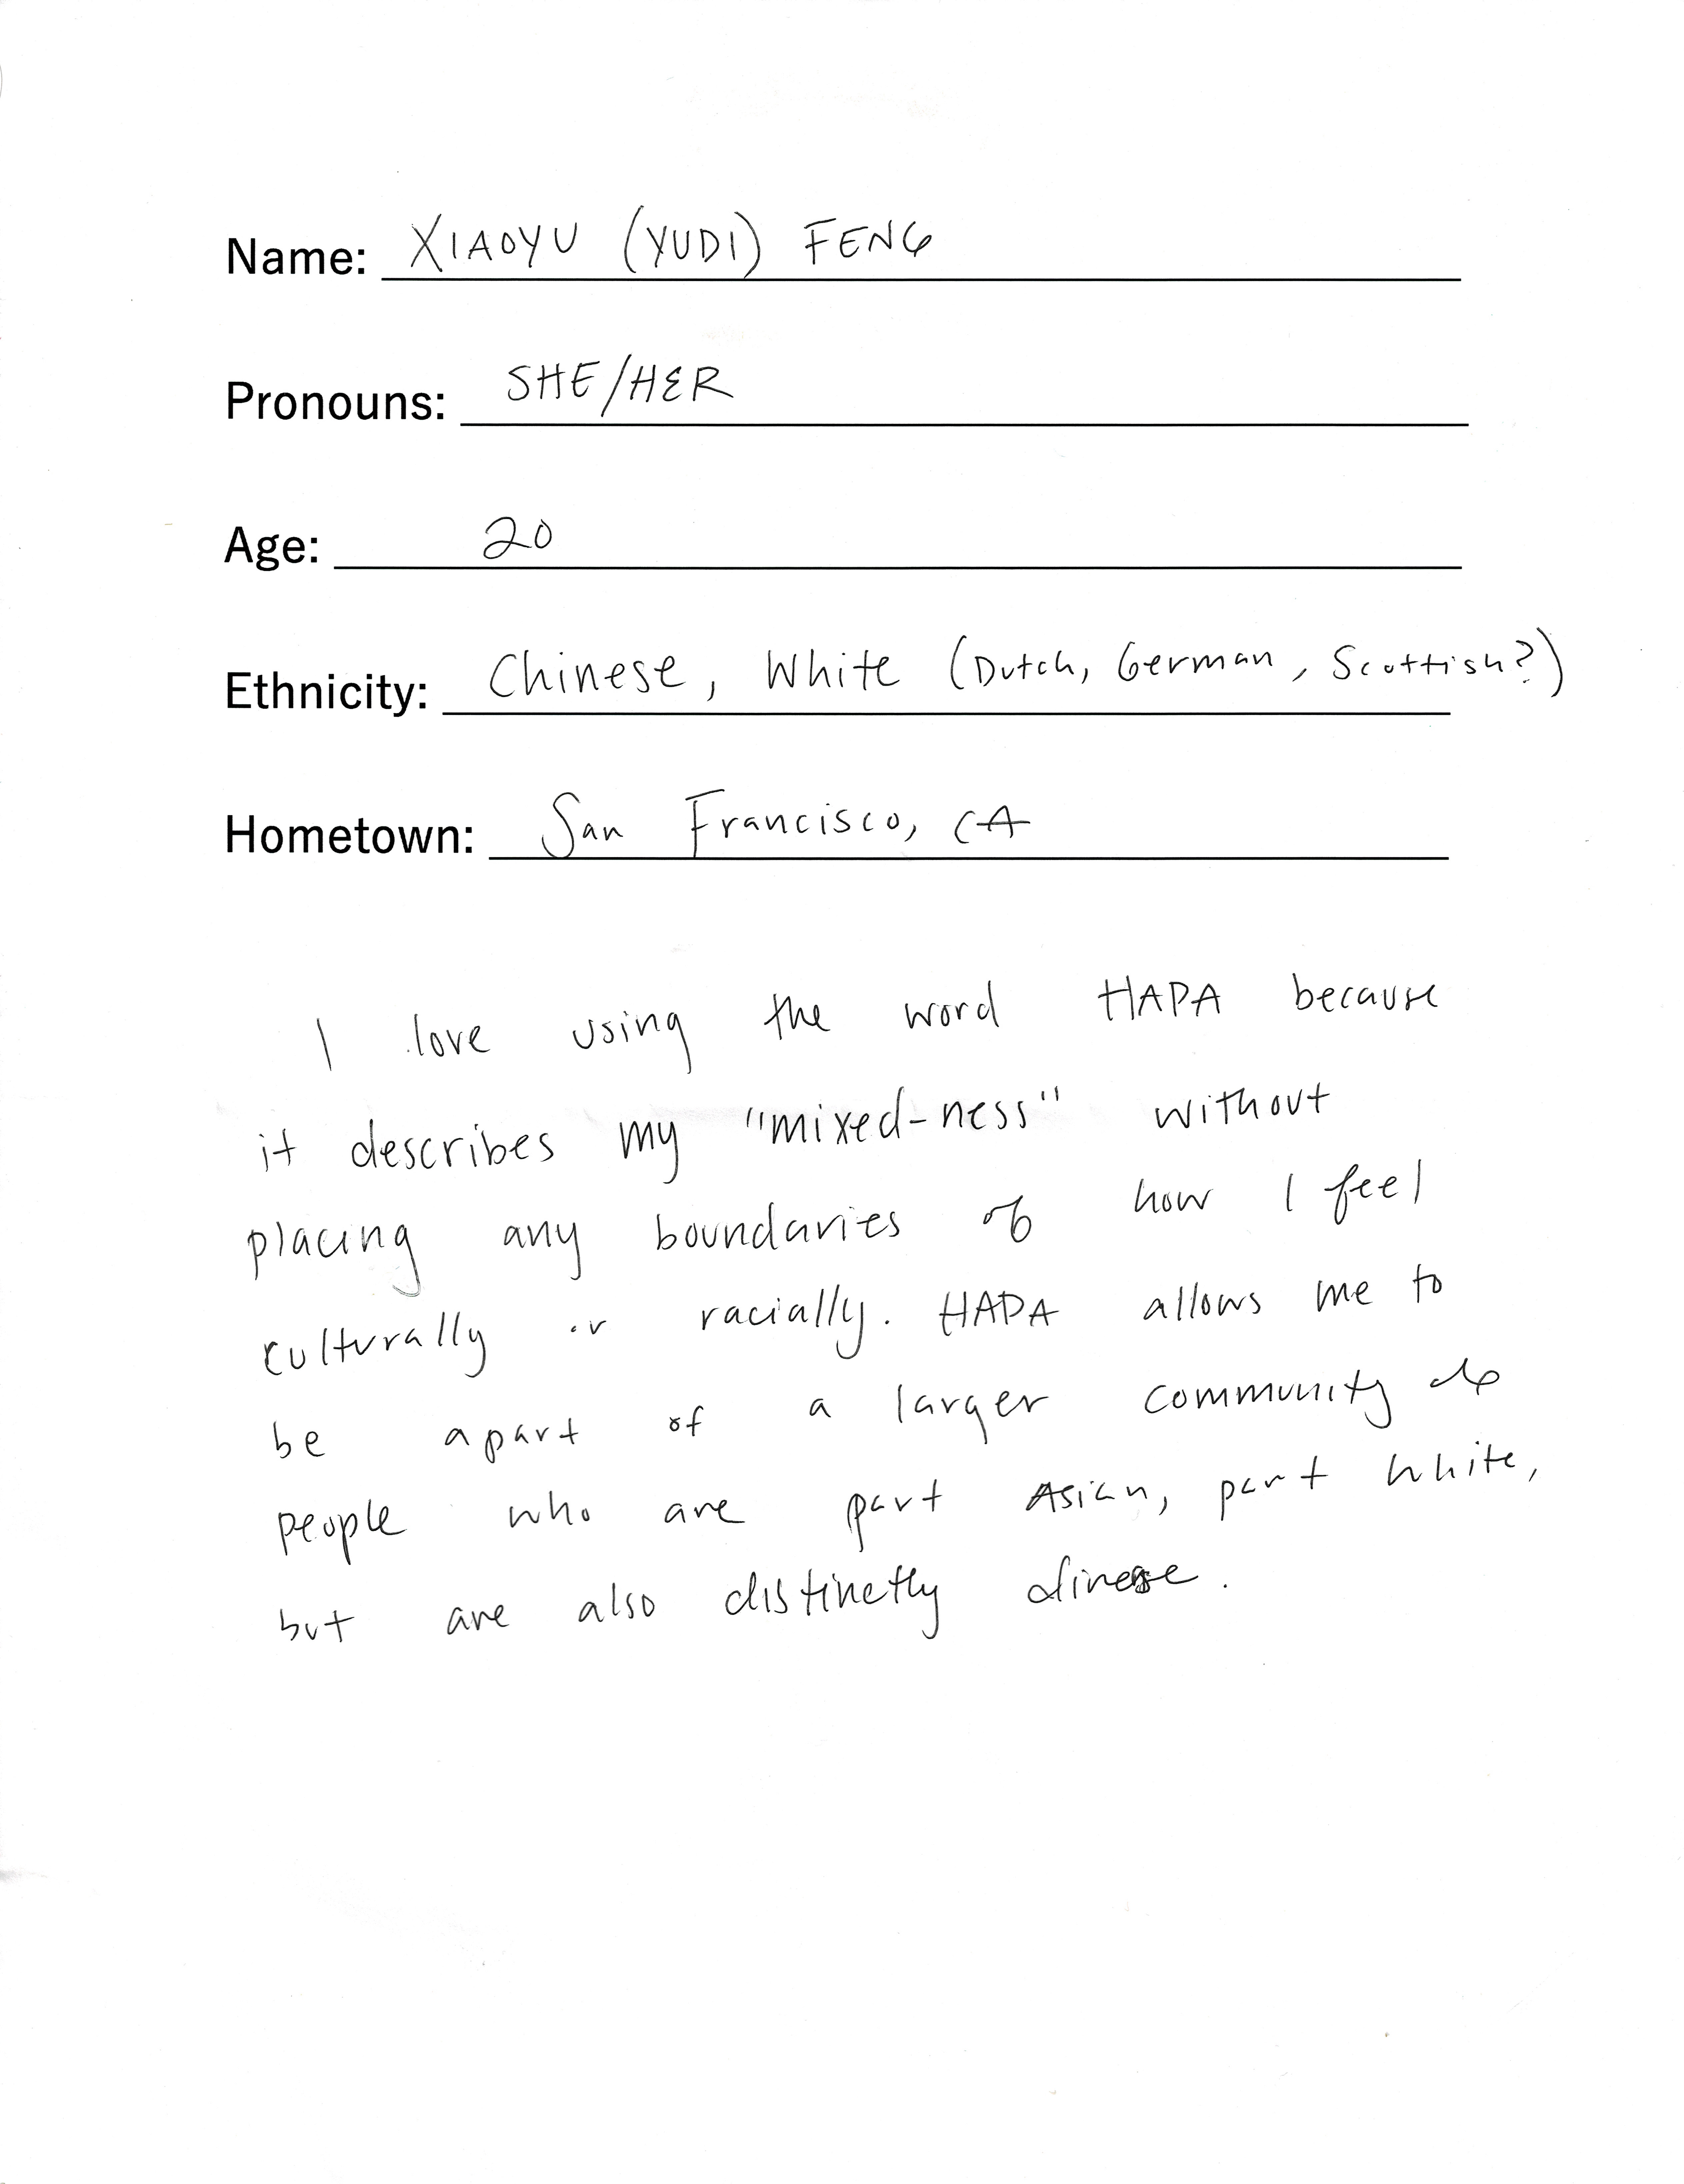 Name: XIAOYU (YUDI) FENG
Pronouns: SHE/HER
Age: 20
Ethnicity: Chinese, White (Dutch, German, Scottish?)
Hometown: San Francisco, CA
I love using the word HAPA because
it describes my "mixed-ness" without
placing any boundaries of how I feel
culturally or racially. HAPA allows me to
be apart of a larger community of
people who are part Asian, part white,
but are also distinctly diverse.